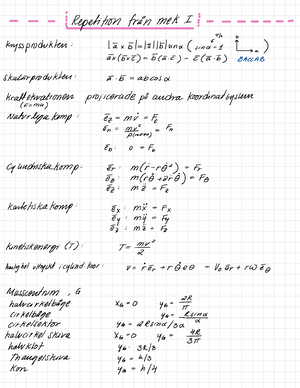 Repetition från mek I
Kryssprodukten: |a̅ x b̅| = |a̅||b̅| sin α (sin α = 1
a̅x(b̅xc̅) = b̅(a̅·c̅) - c̅(a̅·b̅) BACCAB
Skalärprodukten: a̅·b̅ = ab cos α
Kraftekvationen projicerade på andra koordinatsystem
(F=ma)
Naturliga komp: = mv̇ = Ft
e̅n = mv²/ρ = Fn
e̅b: 0 = Fb
Cylindriska komp: e̅r: m(r̈ - rθ̇²) = Fr
e̅θ: m(rθ̈ + 2ṙθ̇) = Fθ
e̅z: m z̈ = Fz
Kartetiska komp: e̅x: mẍ = Fx
e̅y: mÿ = Fy
e̅z: m z̈ = Fz
Kinetisk energi (T): T = mv²/2
i cylind koor: v = ṙ e̅r + r θ̇ e̅θ =
Masscentrum, G
halvcirkelbåge xG = 0 yG = 2R/π
cirkelbåge yG = R sin α/α
cirkelsektor yG = 2R sin α/3α
halvcirkel skiva xG = 0 yG = 4R/3π
halvklot yG = 3R/8
Triangelskiva yG = h/3
Kon yG = h/4